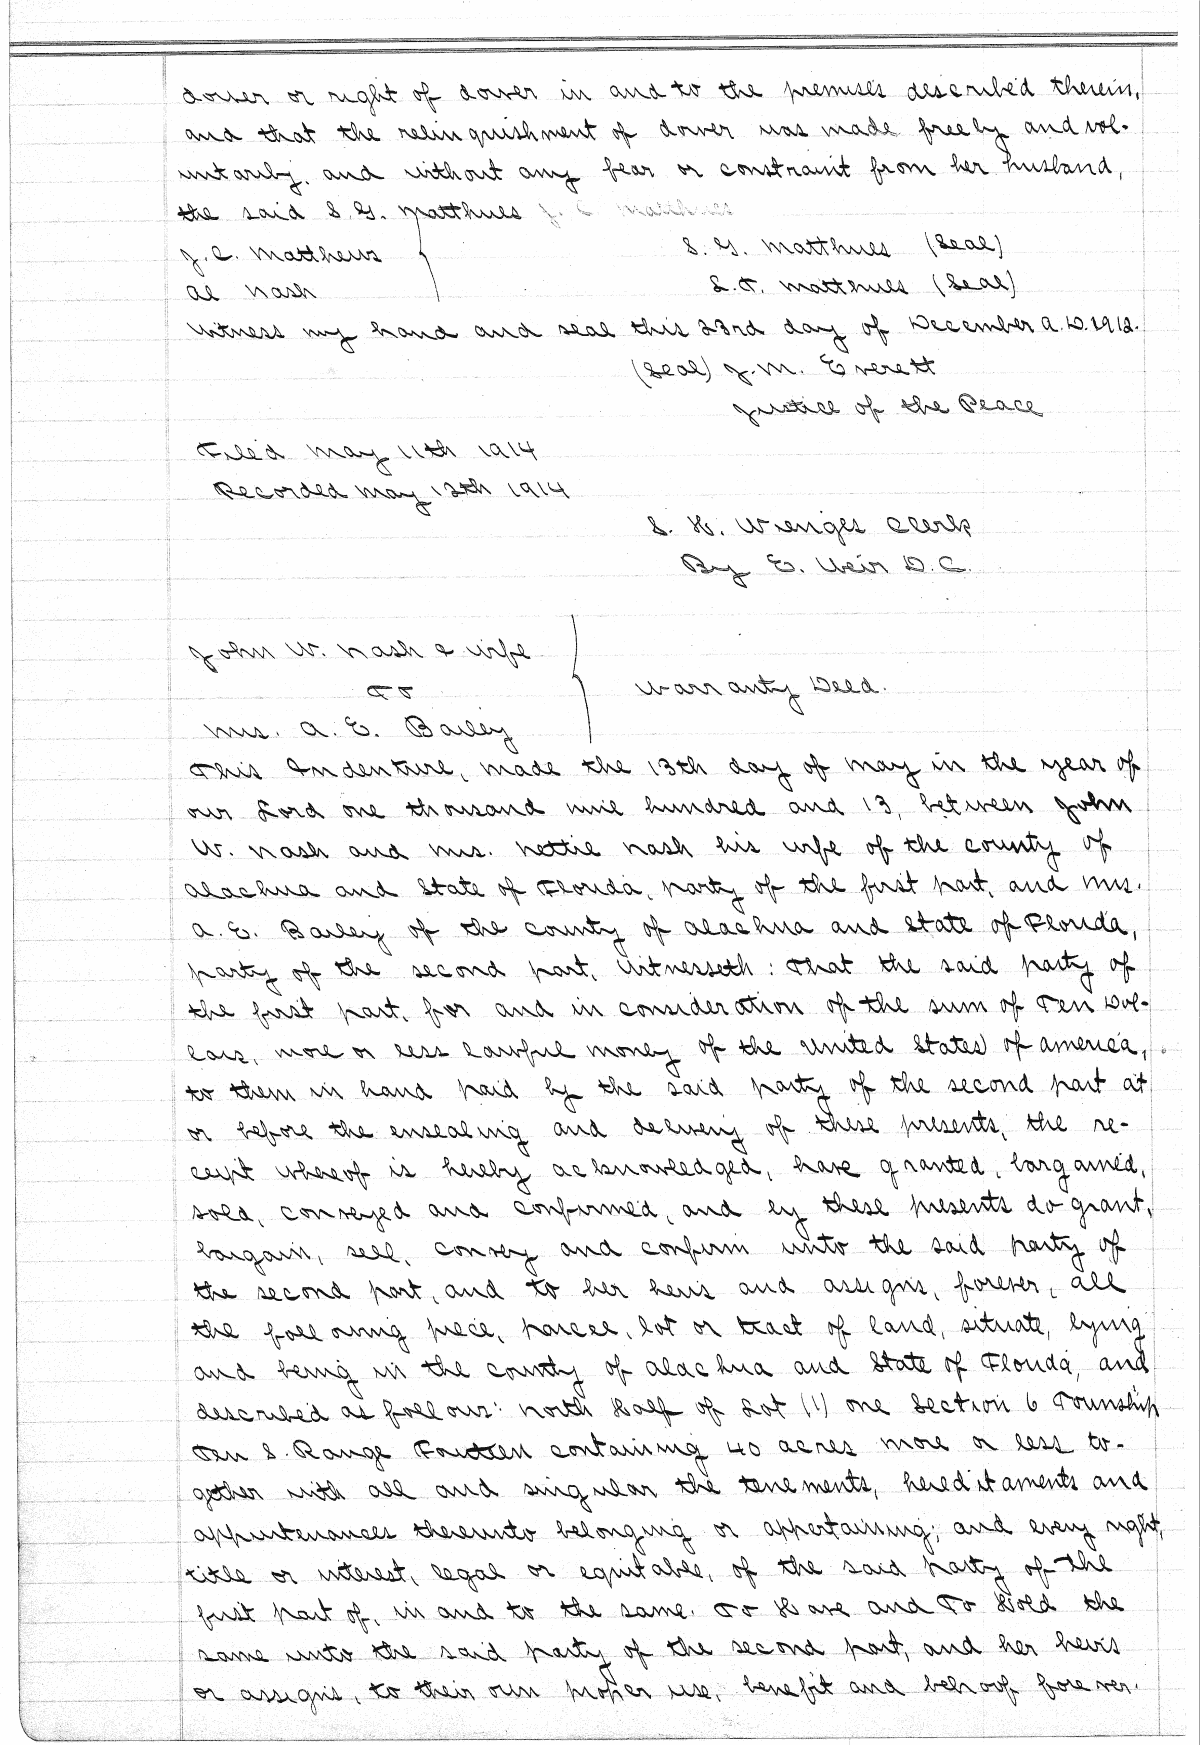 dower or right of dower in and to the premises described therein,
and that the relinquishment of dower was made freely and vol-
untarily. and without any fear or constraint from her husband,
the said S. G. Matthues J. C Matthues
J. C. Matthews S. G. Matthues (Seal)
Al Nash S. T. Matthues (Seal)
Witness my hand and seal this 23rd day of December A.D. 1912.
(Seal) J. M. Everett
Justice of the Peace
Filed May 11th 1914
Recorded May 12th 1914
S. H. Wienges Clerk
By E. Weir D.C.
John W. Nash & wife
To Warranty Deed.
Mrs. A. E. Bailey
This Indenture, made the 13th day of May in the year of
our Lord one thousand nine hundred and 13, between John
W. Nash and Mrs. Nettie Nash his wife of the county of
Alachua and State of Florida, party of the first part, and Mrs.
A. E. Bailey of the county of Alachua and State of Florida,
party of the second part, Witnesseth: That the said party of
the first part, for and in consideration of the sum of Ten Dol-
lars, more or less lawful money of the United States of America,
to them in hand paid by the said party of the second part at
or before the ensealing and delivery of these presents, the re-
ceipt whereof is hereby acknowledged, have granted, bargained,
sold, conveyed and confirmed, and by these presents do grant,
bargain, sell, convey and confirm unto the said party of
the second part, and to her heirs and assigns, forever, all
the following piece, parcel, lot or tract of land, situate, lying
and being in the county of Alachua and State of Florida, and
described as follows: North Half of Lot (1) one Section 6 Township
Ten S. Range Fourteen containing 40 acres more or less to-
gether with all and singular the tenements, hereditaments and
appurtenances thereunto belonging or appertaining; and every right,
title or interest, legal or equitable, of the said party of the
first part of, in and to the same. To Have and To Hold the
same unto the said party of the second part, and her heirs
or assigns, to their own proper use, benefit and behoof forever.